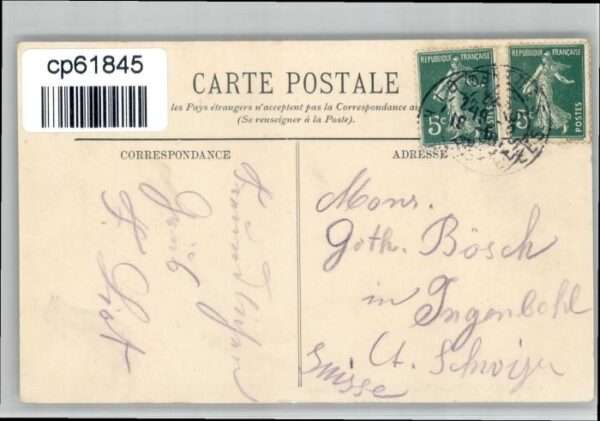 cp61845
CARTE POSTALE
les Pays étrangers n'acceptent pas la Correspondance au
(Se renseigner à la Poste).
CORRESPONDANCE
ADRESSE
REPUBLIQUE FRANÇAISE
5c
POSTES
REPUBLIQUE FRANÇAISE
5c
POSTES
Mons.
Goth. Bösch
in Ingenbohl
Ct. Schwyz
Suisse